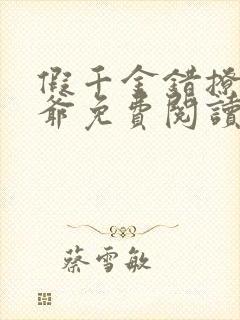 假千金錯撩
爺免費閱讀
蔡雪敏